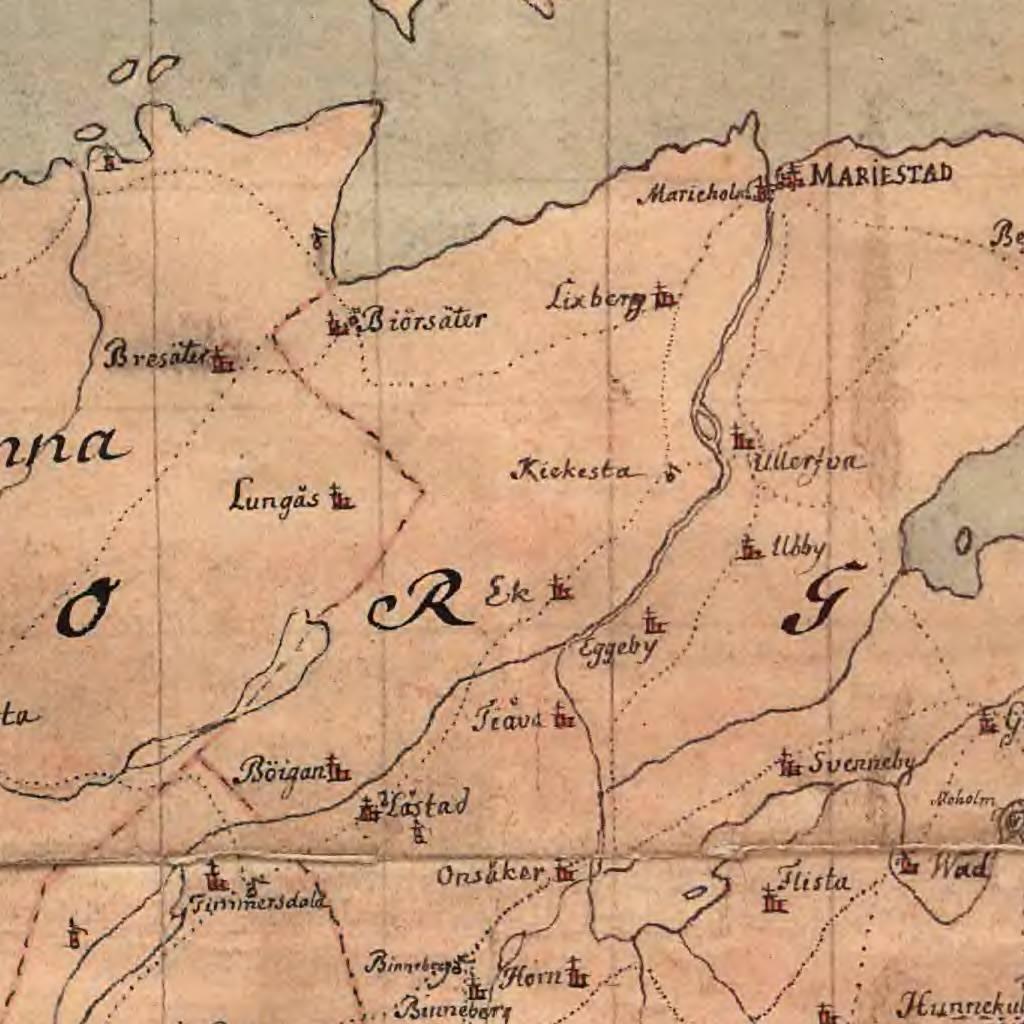 MARIESTAD
Marieholm
Be
Lixberg
Biörsäter
Bresäter
nna
Ullerfva
Kiekesta
Lungås
Ubby
O R G
Ek
Eggeby
ta
Fråva
G
Svenneby
Böigan
Moholm
Låstad
Onsåker
Wad
Flista
Timmersdala
Binneberg
Horn
Binneberg
Hunneku